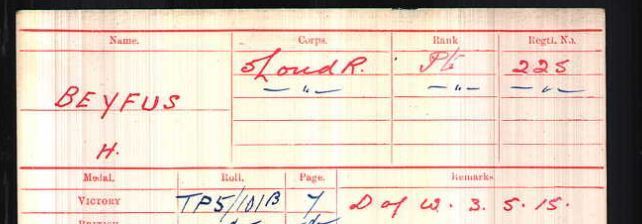 Name. Corps. Rank Regtl. No.
5 Lond R. Pte 225
— " — — " — — " —
BEYFUS
H.
Medal. Roll. Page. Remarks.
VICTORY TP5/101B 7 D of W. 3. 5. 15.
BRITISH